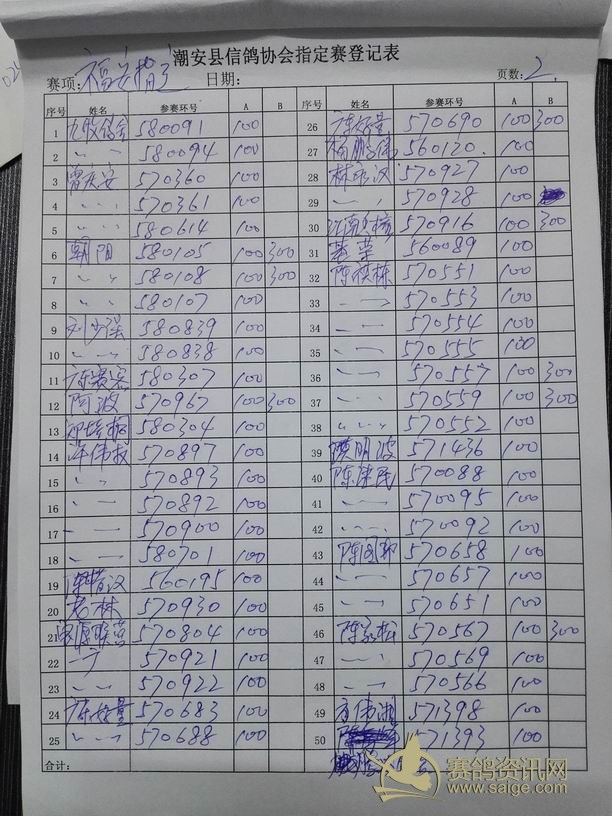 潮安县信鸽协会指定赛登记表
赛项: 福安指定 日期: 页数: 2.
序号 姓名 参赛环号 A B 序号 姓名 参赛环号 A B
1 580091 100 26 陈好量 570690 100 300
2 〃 580094 100 27 杨鹏伟 560120. 100
3 曾庆安 570360 100 28 林永汉 570927 100
4 〃 570361 100 29 〃 570928 100
5 〃 580614 100 30 570916 100 300
6 朝阳 580105 100 300 31 560089 100
7 〃 580108 100 300 32 570551 100
8 〃 580107 100 33 〃 570553 100
9 刘少强 580839 100 34 〃 570554 100
10 〃 580838 100 35 〃 570555 100
11 580307 100 36 〃 570557 100 300
12 阿波 570967 100 300 37 〃 570559 100 300
13 580304 100 38 〃 570552 100
14 570897 100 39 洪明波 571436 100
15 〃 570893 100 40 陈泽民 570088 100
16 〃 570892 100 41 〃 570095 100
17 〃 570900 100 42 〃 570092 100
18 〃 580701 100 43 570658 100
19 560195 100 44 〃 570657 100
20 老林 570930 100 45 〃 570651 100
21 570804 100 46 陈永松 570567 100 300
22 〃 570921 100 47 〃 570569 100
23 〃 570922 100 48 〃 570566 100
24 陈好量 570683 100 49 571398 100
25 〃 570688 100 50 571393 100
合计:
赛鸽资讯网
www.saige.com